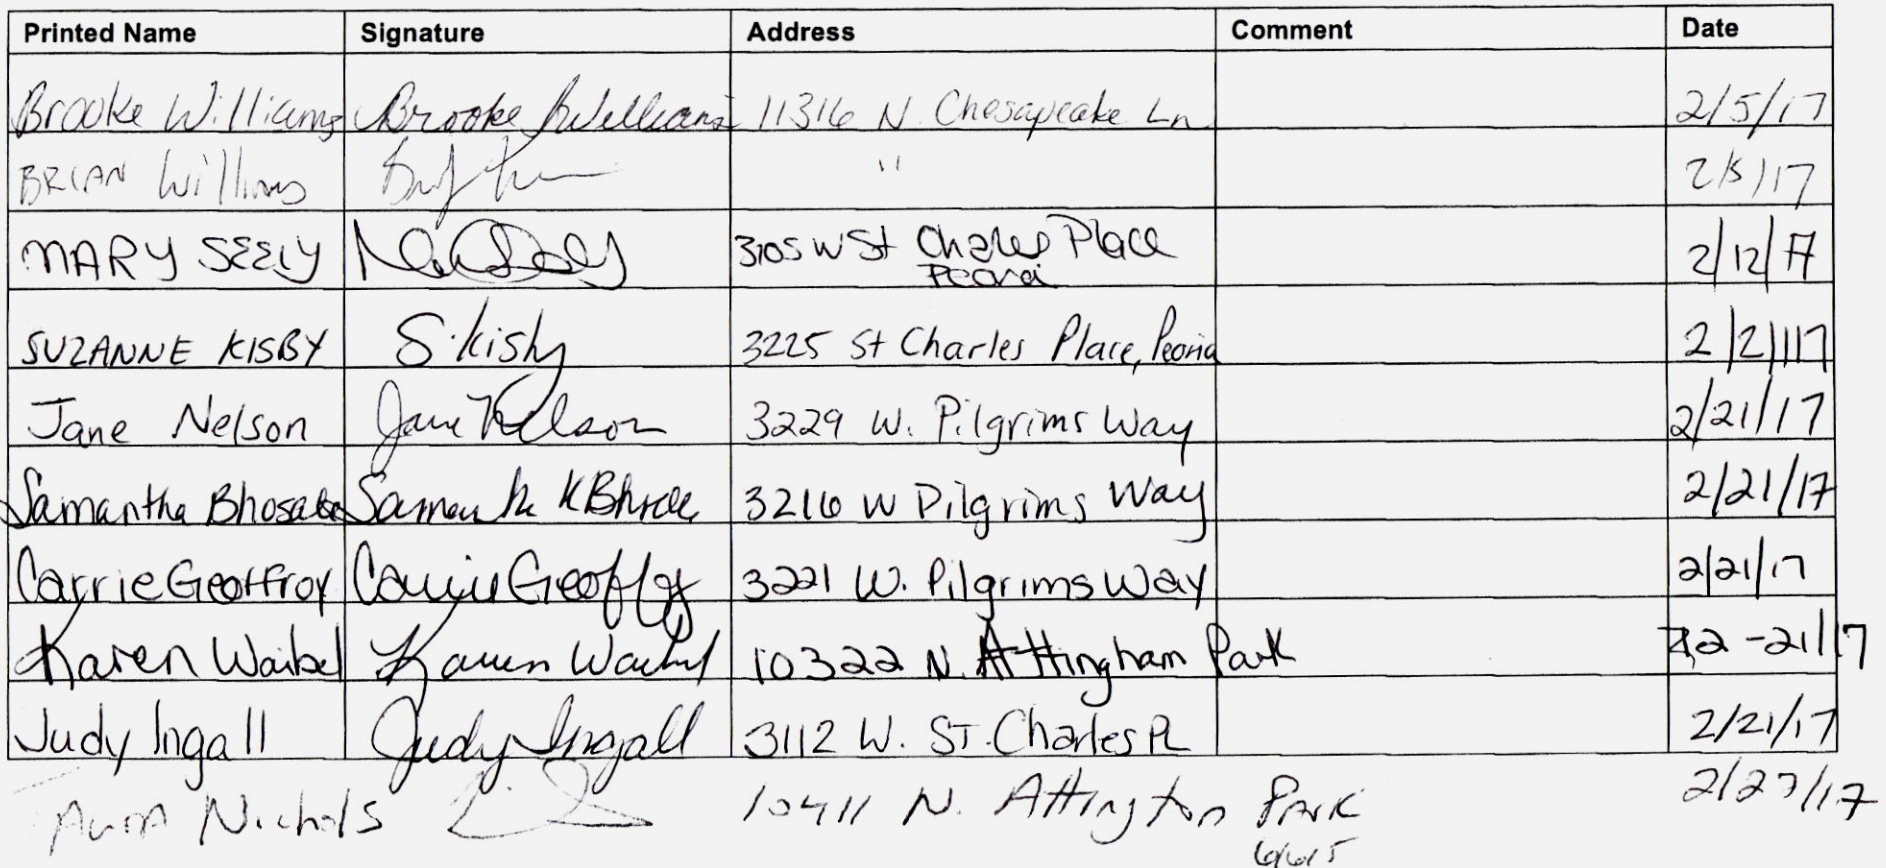 Printed Name Signature Address Comment Date
Brooke Williams Brooke Williams 11316 N. Chesapeake Ln 2/5/17
BRIAN Williams " 2/5/17
MARY SEELY 3105 W St Charles Place 2/12/17
Peoria
SUZANNE KISBY S. Kisby 3225 St Charles Place, Peoria 2/21/17
Jane Nelson Jane Nelson 3229 W. Pilgrims Way 2/21/17
Samantha Samantha K 3216 W Pilgrims Way 2/21/17
Carrie Geoffroy Carrie Geoffroy 3221 W. Pilgrims Way 2/21/17
Karen Waibel Karen Waibel 10322 N. Attingham Park 2-21/17
Judy Ingall Judy Ingall 3112 W. ST. Charles PL 2/21/17
Nichols 10411 N. Attington PARK 2/27/17
61615